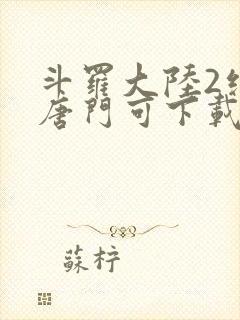 斗羅大陸2
唐門可下載
蘇柠